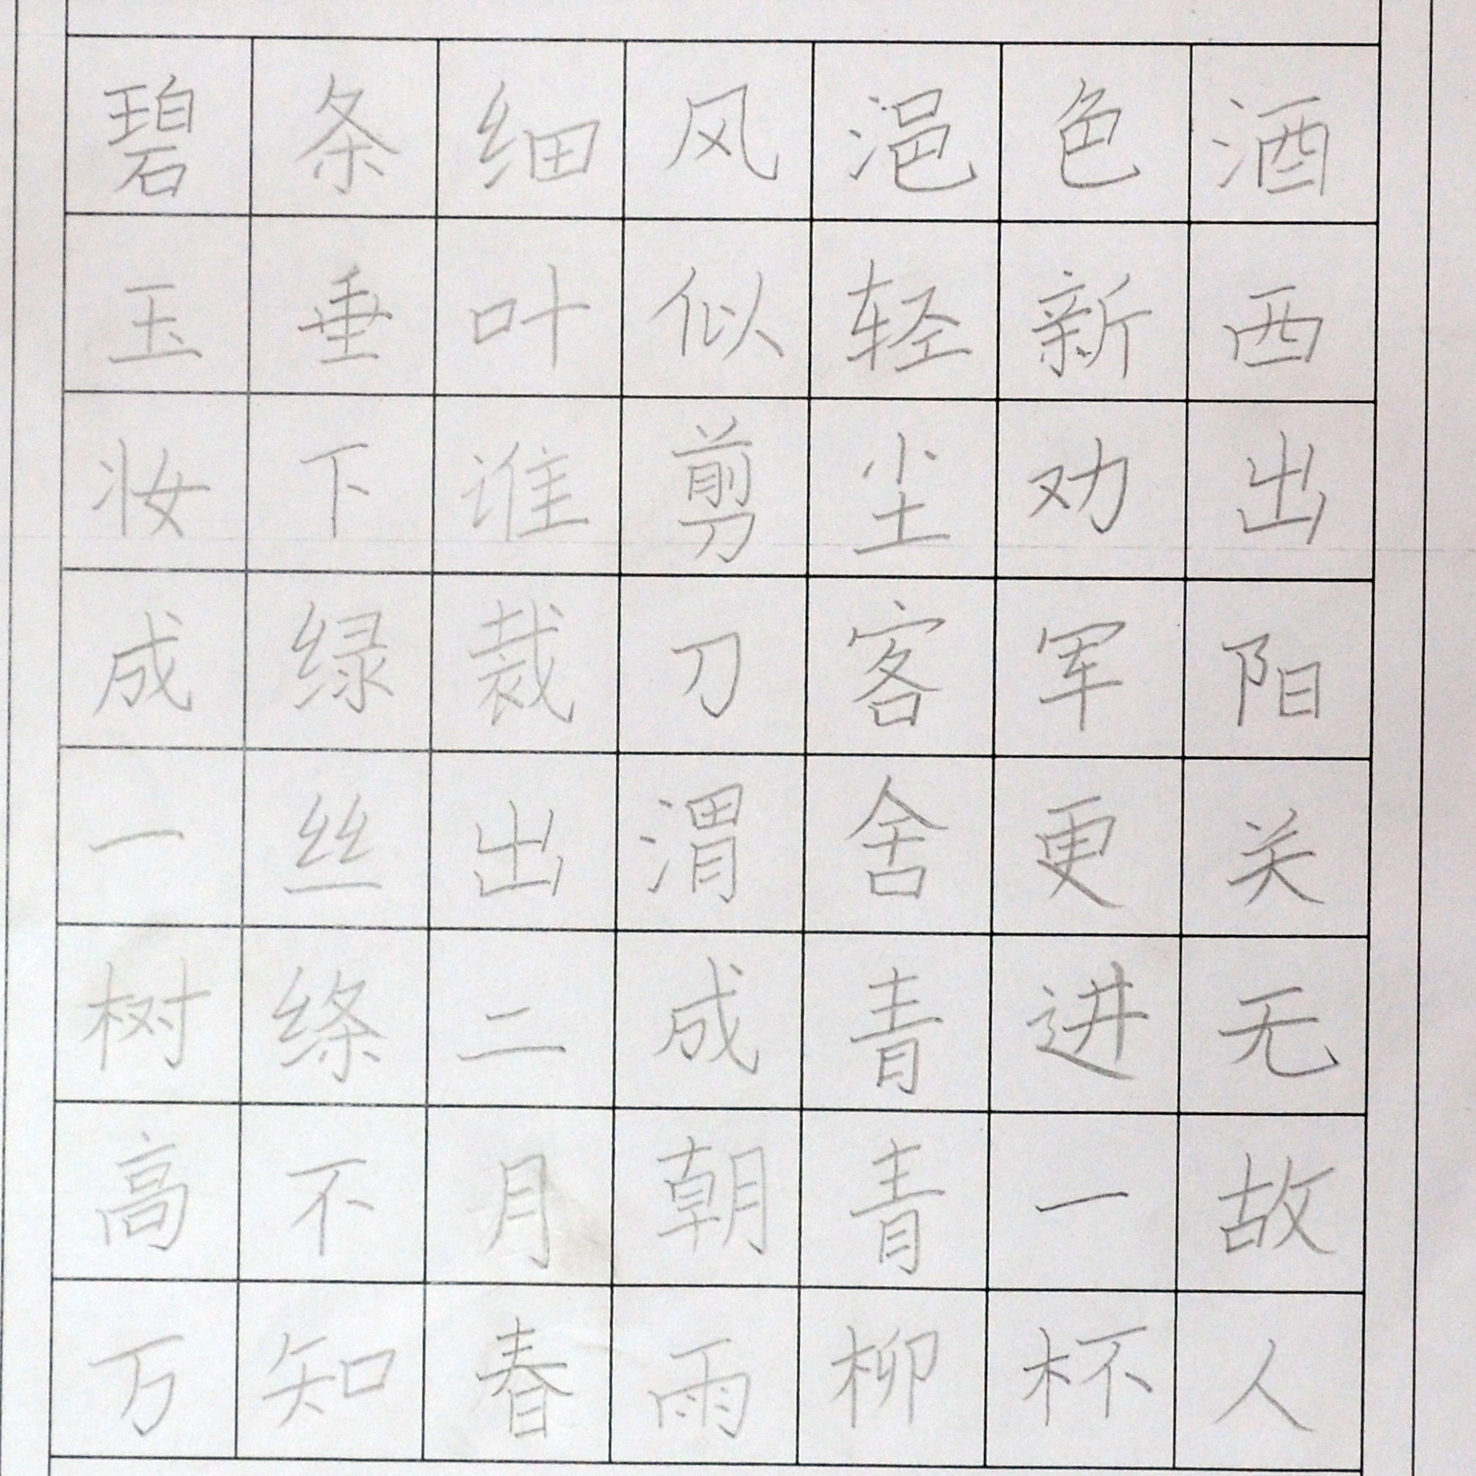 碧玉妆成一树高万
条垂下绿丝绦不知
细叶谁裁出二月春
风似剪刀渭成朝雨
浥轻尘客舍青青柳
色新劝军更进一杯
酒西出阳关无故人